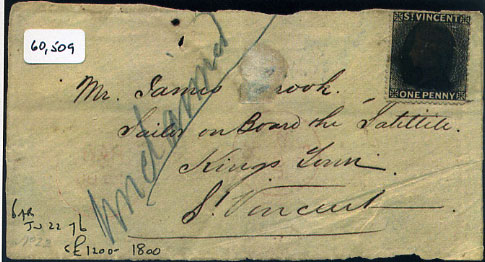 60,509
ST VINCENT
ONE PENNY
Unclaimed
Mr. James Crook.
Sailor on Board the
Kings Town.
St. Vincent
JU 22 76
£1200- 1800